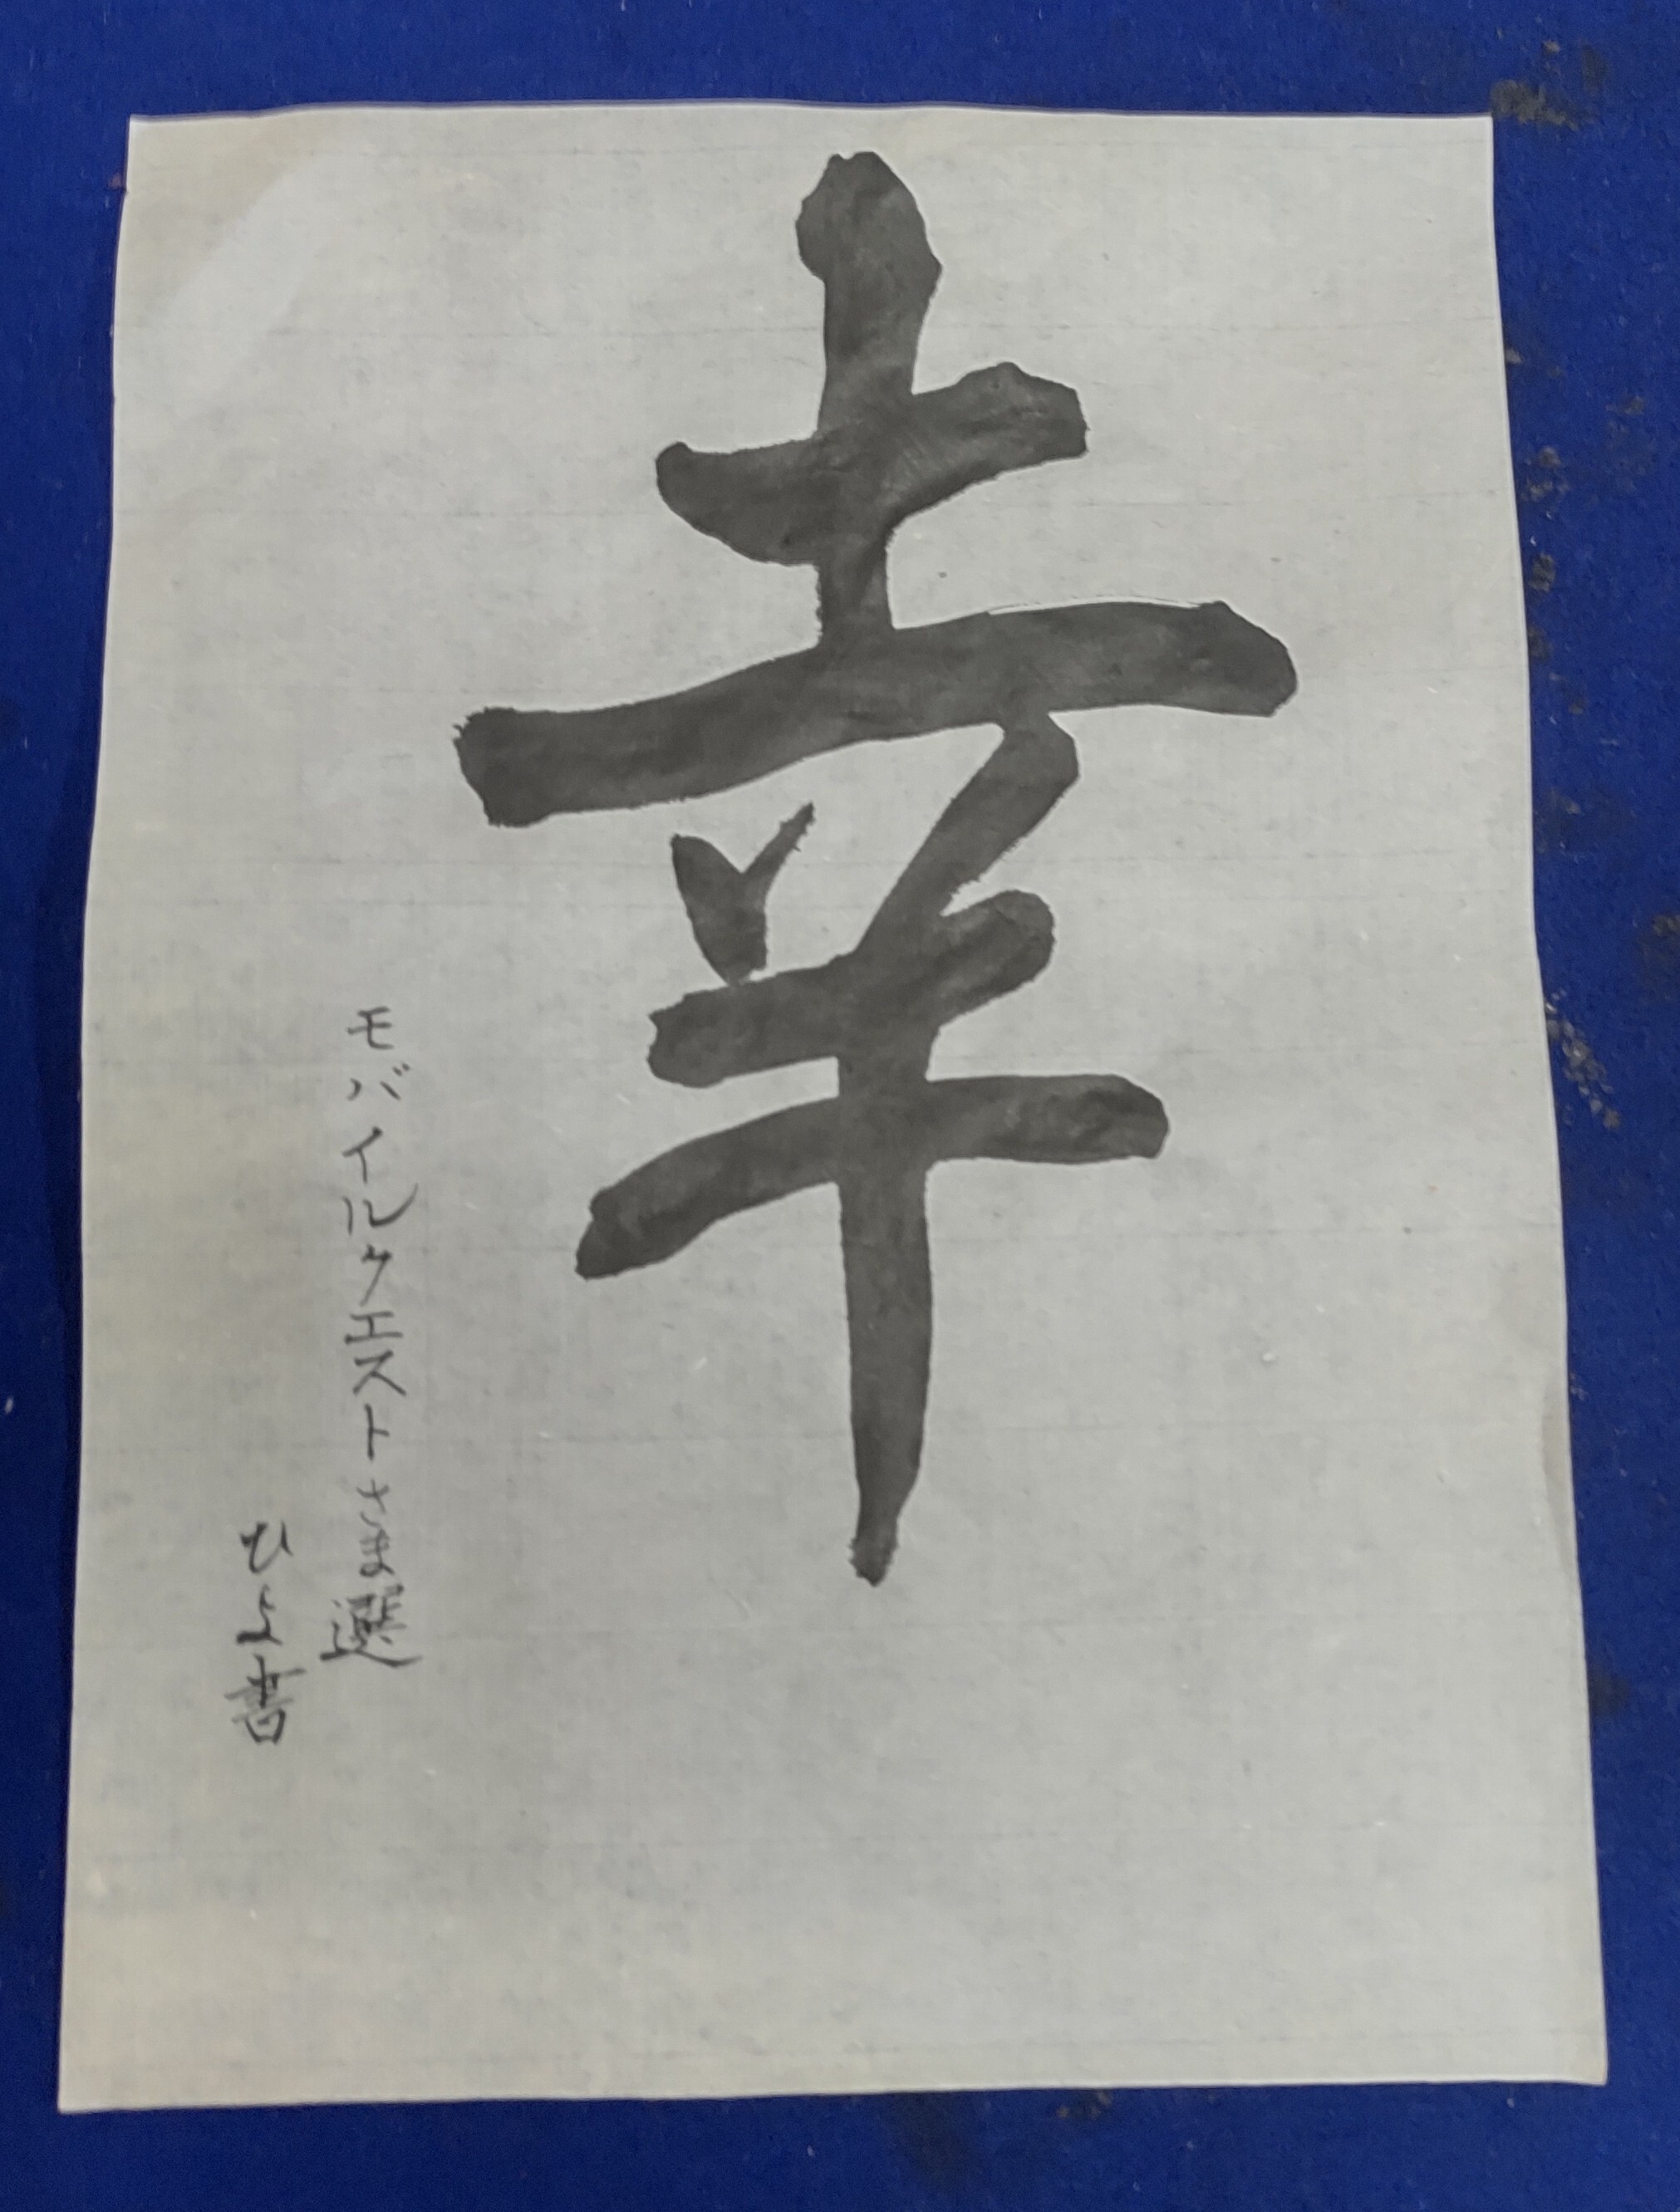 幸
モバイルクエストさま選
ひよ書